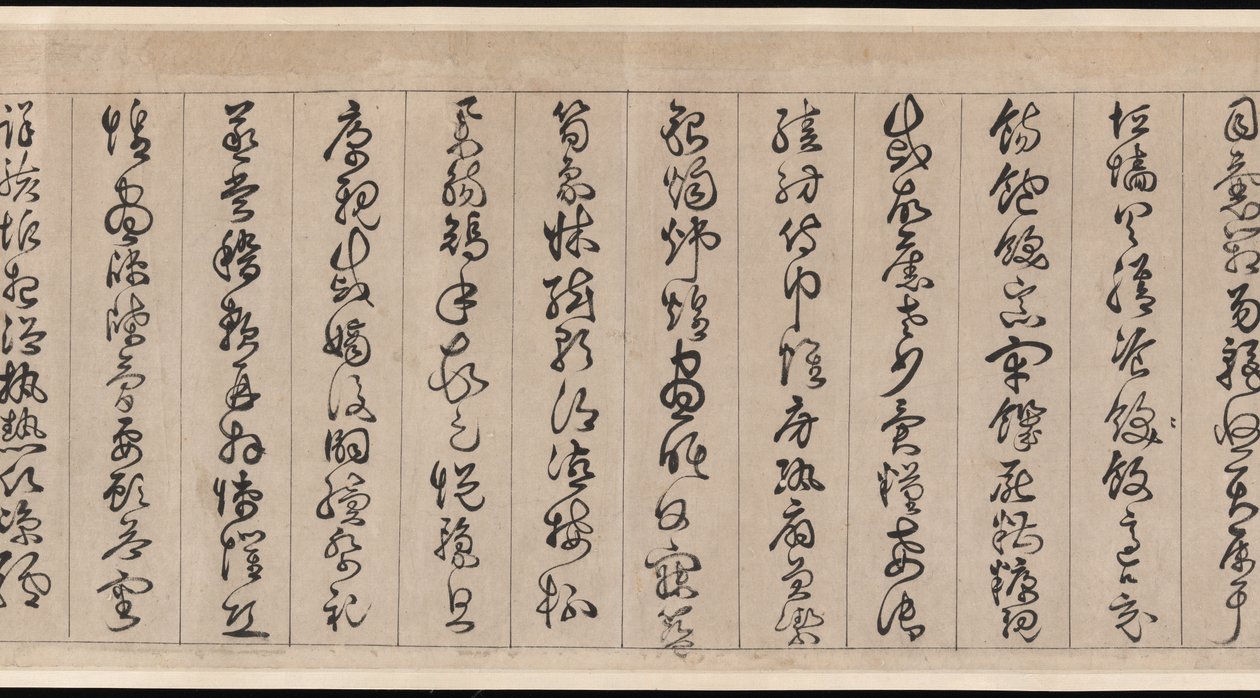 目囊箱易輶攸畏屬耳
垣墻具膳飡飯適口充
腸飽飫烹宰饑厭糟糠親
戚故舊老少異糧妾御
績紡侍巾帷房紈扇圓潔
銀燭煒煌晝眠夕寐籃
筍象床絃歌酒讌接杯
舉觴矯手頓足悅豫且
康親戚嫡後嗣續祭祀
蒸嘗稽顙再拜悚懼恐
惶晝牋牒簡要顧答審
詳骸垢想浴執熱願涼驢